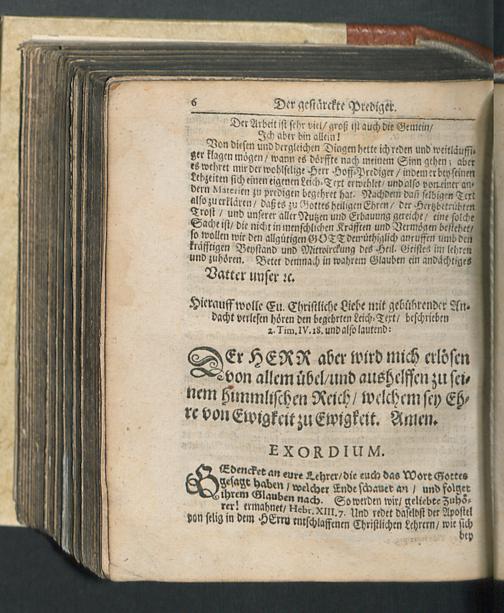 6 Der gestärckte Prediger.
Der Arbeit ist sehr viel/ groß ist auch die Gemein/
Ich aber bin allein!
Von diesen und dergleichen Dingen hette ich reden und weitläuffi-
ger klagen mögen/ wann es dörffte nach meinem Sinn gehen; aber
es wehret mir der wohlselige Herr Hoff-Prediger/ indem er bey seinen
Lebzeiten sich einen eigenen Leich-Text erwehlet/ und also von einer an-
dern Materien zu predigen begehret hat. Nachdem daß selbigen Text
also zu erklären/ daß es zu Gottes heiligen Ehren/ der Hertzbetrübten
Trost/ und unserer aller Nutzen und Erbauung gereiche/ eine solche
Sache ist/ die nicht in menschlichen Kräfften und Vermögen bestehet/
so wollen wir den allgütigen GOTT demüthiglich anruffen umb den
kräfftigen Beystand und Mitwirckung des Heil. Geistes im lehren
und zuhören. Betet demnach in wahrem Glauben ein andächtiges
Vatter unser ꝛc.
Hierauff wolle Eu. Christliche Liebe mit gebührender An-
dacht verlesen hören den begehrten Leich-Text/ beschrieben
2. Tim. IV. 18. und also lautend:
DEr HERR aber wird mich erlösen
von allem übel/ und aushelffen zu sei-
nem himmlischen Reich/ welchem sey Eh-
re von Ewigkeit zu Ewigkeit. Amen.
EXORDIUM.
GEdencket an eure Lehrer/ die euch das Wort Gottes
gesagt haben/ welcher Ende schauet an/ und folget
ihrem Glauben nach. So werden wir/ geliebte Zuhö-
rer! ermahnet/ Hebr. XIII, 7. Und redet daselbst der Apostel
von selig in dem HErrn entschlaffenen Christlichen Lehrern/ wie sich
bey